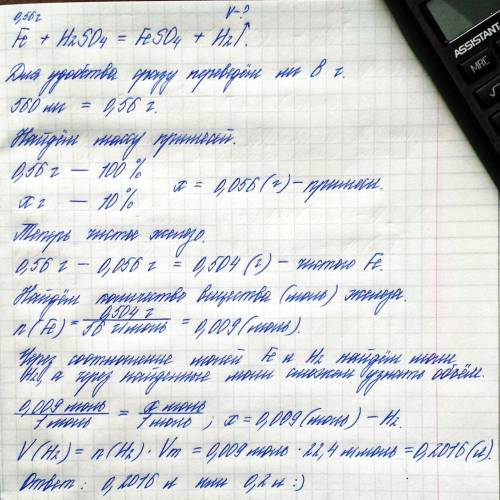 0,56г V-?
Fe + H2SO4 = FeSO4 + H2↑.
Для удобства сразу переведём мг в г.
560 мг = 0,56 г.
Найдём массу примесей.
0,56 г — 100%
x г — 10%
x = 0,056 (г) – примеси.
Теперь чистое железо.
0,56 г – 0,056 г = 0,504 (г) – чистого Fe.
Найдём количество вещества (моль) железа.
n(Fe) = 0,504 г / 56 г/моль = 0,009 (моль).
Через соотношение молей Fe и H2 найдём моли
H2, а через найденные моли сможем узнать объём.
0,009 моль / 1 моль = x моль / 1 моль ; x = 0,009 (моль) – H2.
V(H2) = n(H2) · Vm = 0,009 моль · 22,4 л/моль = 0,2016 (л).
Ответ: 0,2016 л или 0,2 л :)
ASSISTANT
MRC
√